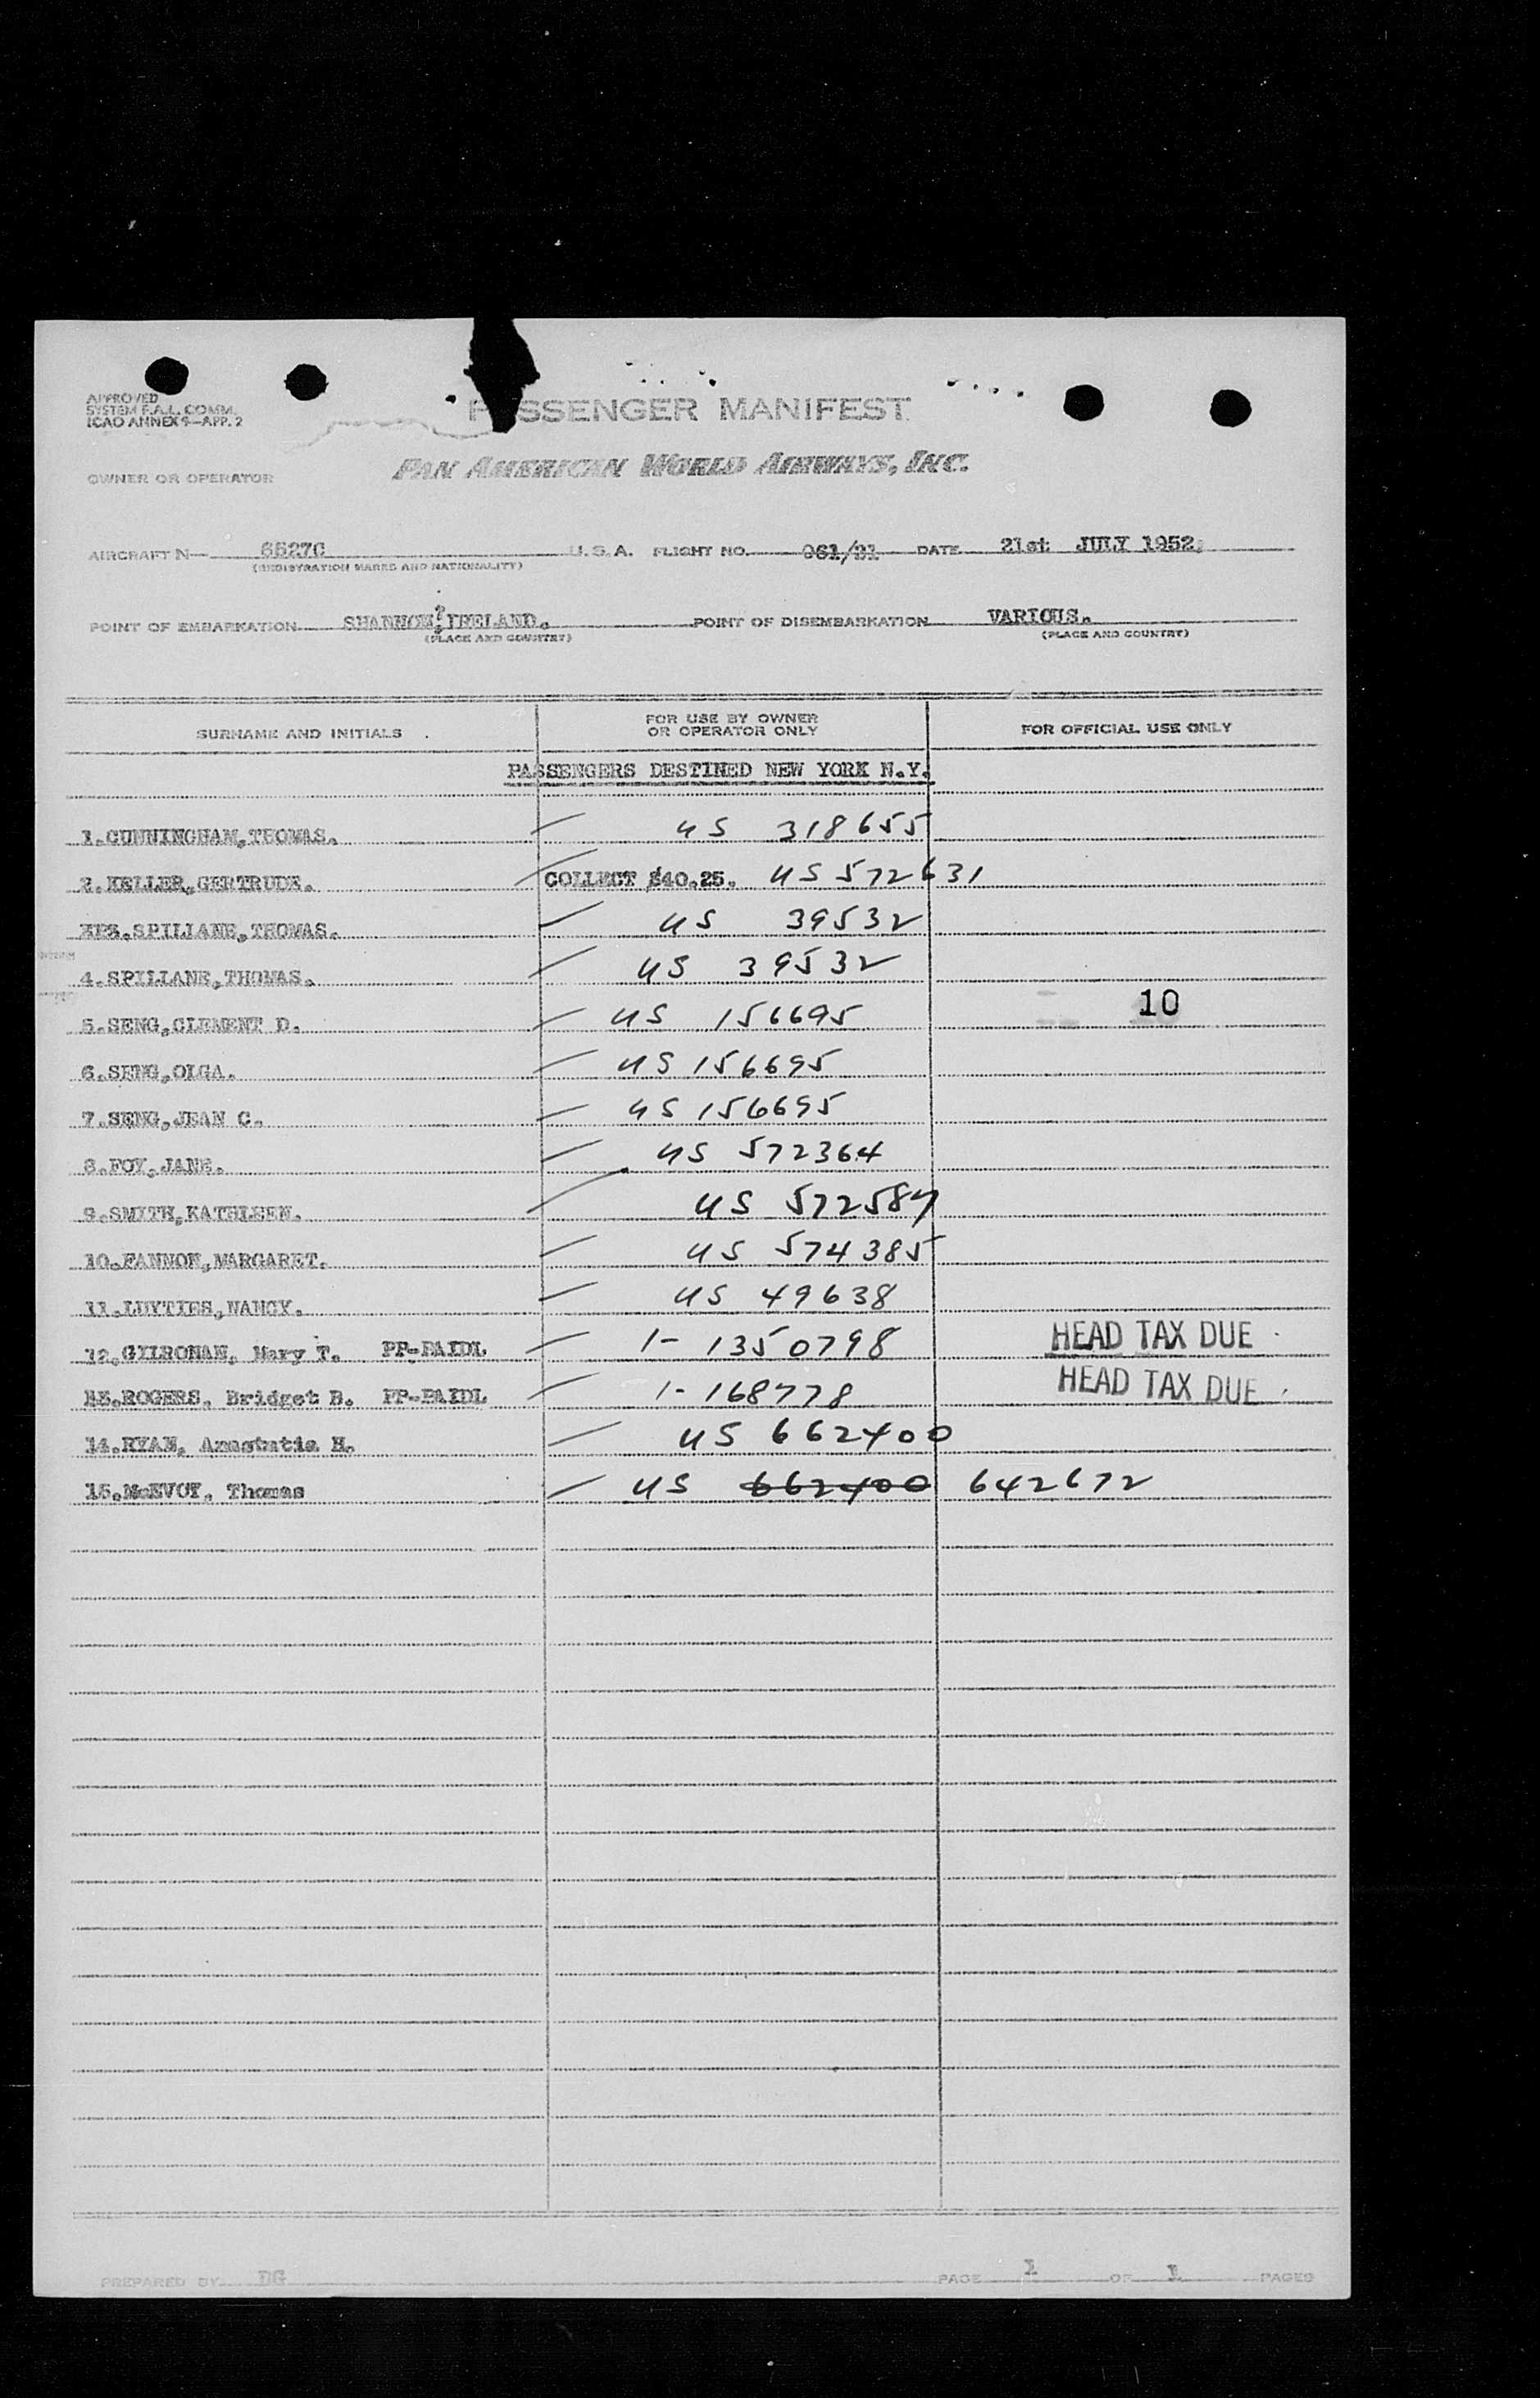 APPROVED
SYSTEM F.A.L. COMM.
ICAO ANNEX 9—APP. 2
PASSENGER MANIFEST
OWNER OR OPERATOR PAN AMERICAN WORLD AIRWAYS, INC.
AIRCRAFT N— 6527C U.S.A. FLIGHT NO. 061/21 DATE 21st JULY 1952.
(REGISTRATION MARKS AND NATIONALITY)
POINT OF EMBARKATION SHANNON, IRELAND. POINT OF DISEMBARKATION VARIOUS.
(PLACE AND COUNTRY) (PLACE AND COUNTRY)
SURNAME AND INITIALS FOR USE BY OWNER OR OPERATOR ONLY FOR OFFICIAL USE ONLY
PASSENGERS DESTINED NEW YORK N.Y.
1.CUNNINGHAM,THOMAS. US 318655
2.KELLER,GERTRUDE. COLLECT $40.25. US 572631
SPILLANE,THOMAS. US 39532
4.SPILLANE,THOMAS. US 39532
5.SENG,CLEMENT D. US 156695 10
6.SENG,OLGA. US 156695
7.SENG,JEAN C. US 156695
8.FOY,JANE. US 572364
9.SMITH,KATHLEEN. US 572587
10.FANNON,MARGARET. US 574385
11.LUYTIES,NANCY. US 49638
12.GILRONAN, Mary T. PP-PAIDL 1- 1350798 HEAD TAX DUE
ROGERS, Bridget B. PP-PAIDL 1-168778 HEAD TAX DUE
14.RYAN, Anastatia H. US 662400
15.McEVOY, Thomas US 662400 642672
PREPARED BY DG PAGE 1 OF 1 PAGES